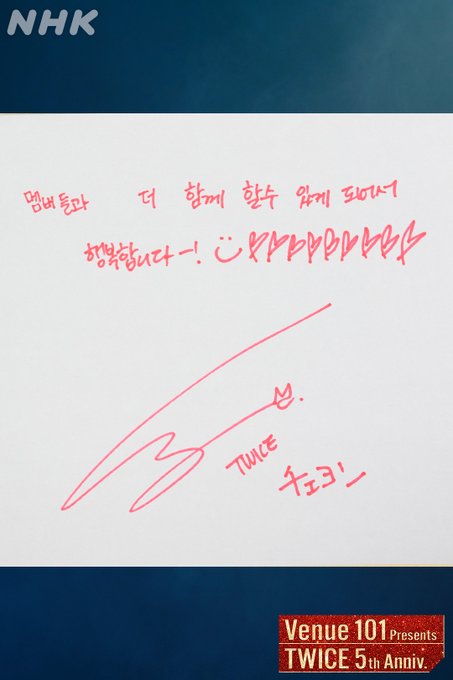 NHK
멤버들과 더 함께 할수 있게 되어서
행복합니다-! :) ♡♡♡♡♡♡♡♡♡
TWICE
채영
Venue 101 Presents
TWICE 5th Anniv.